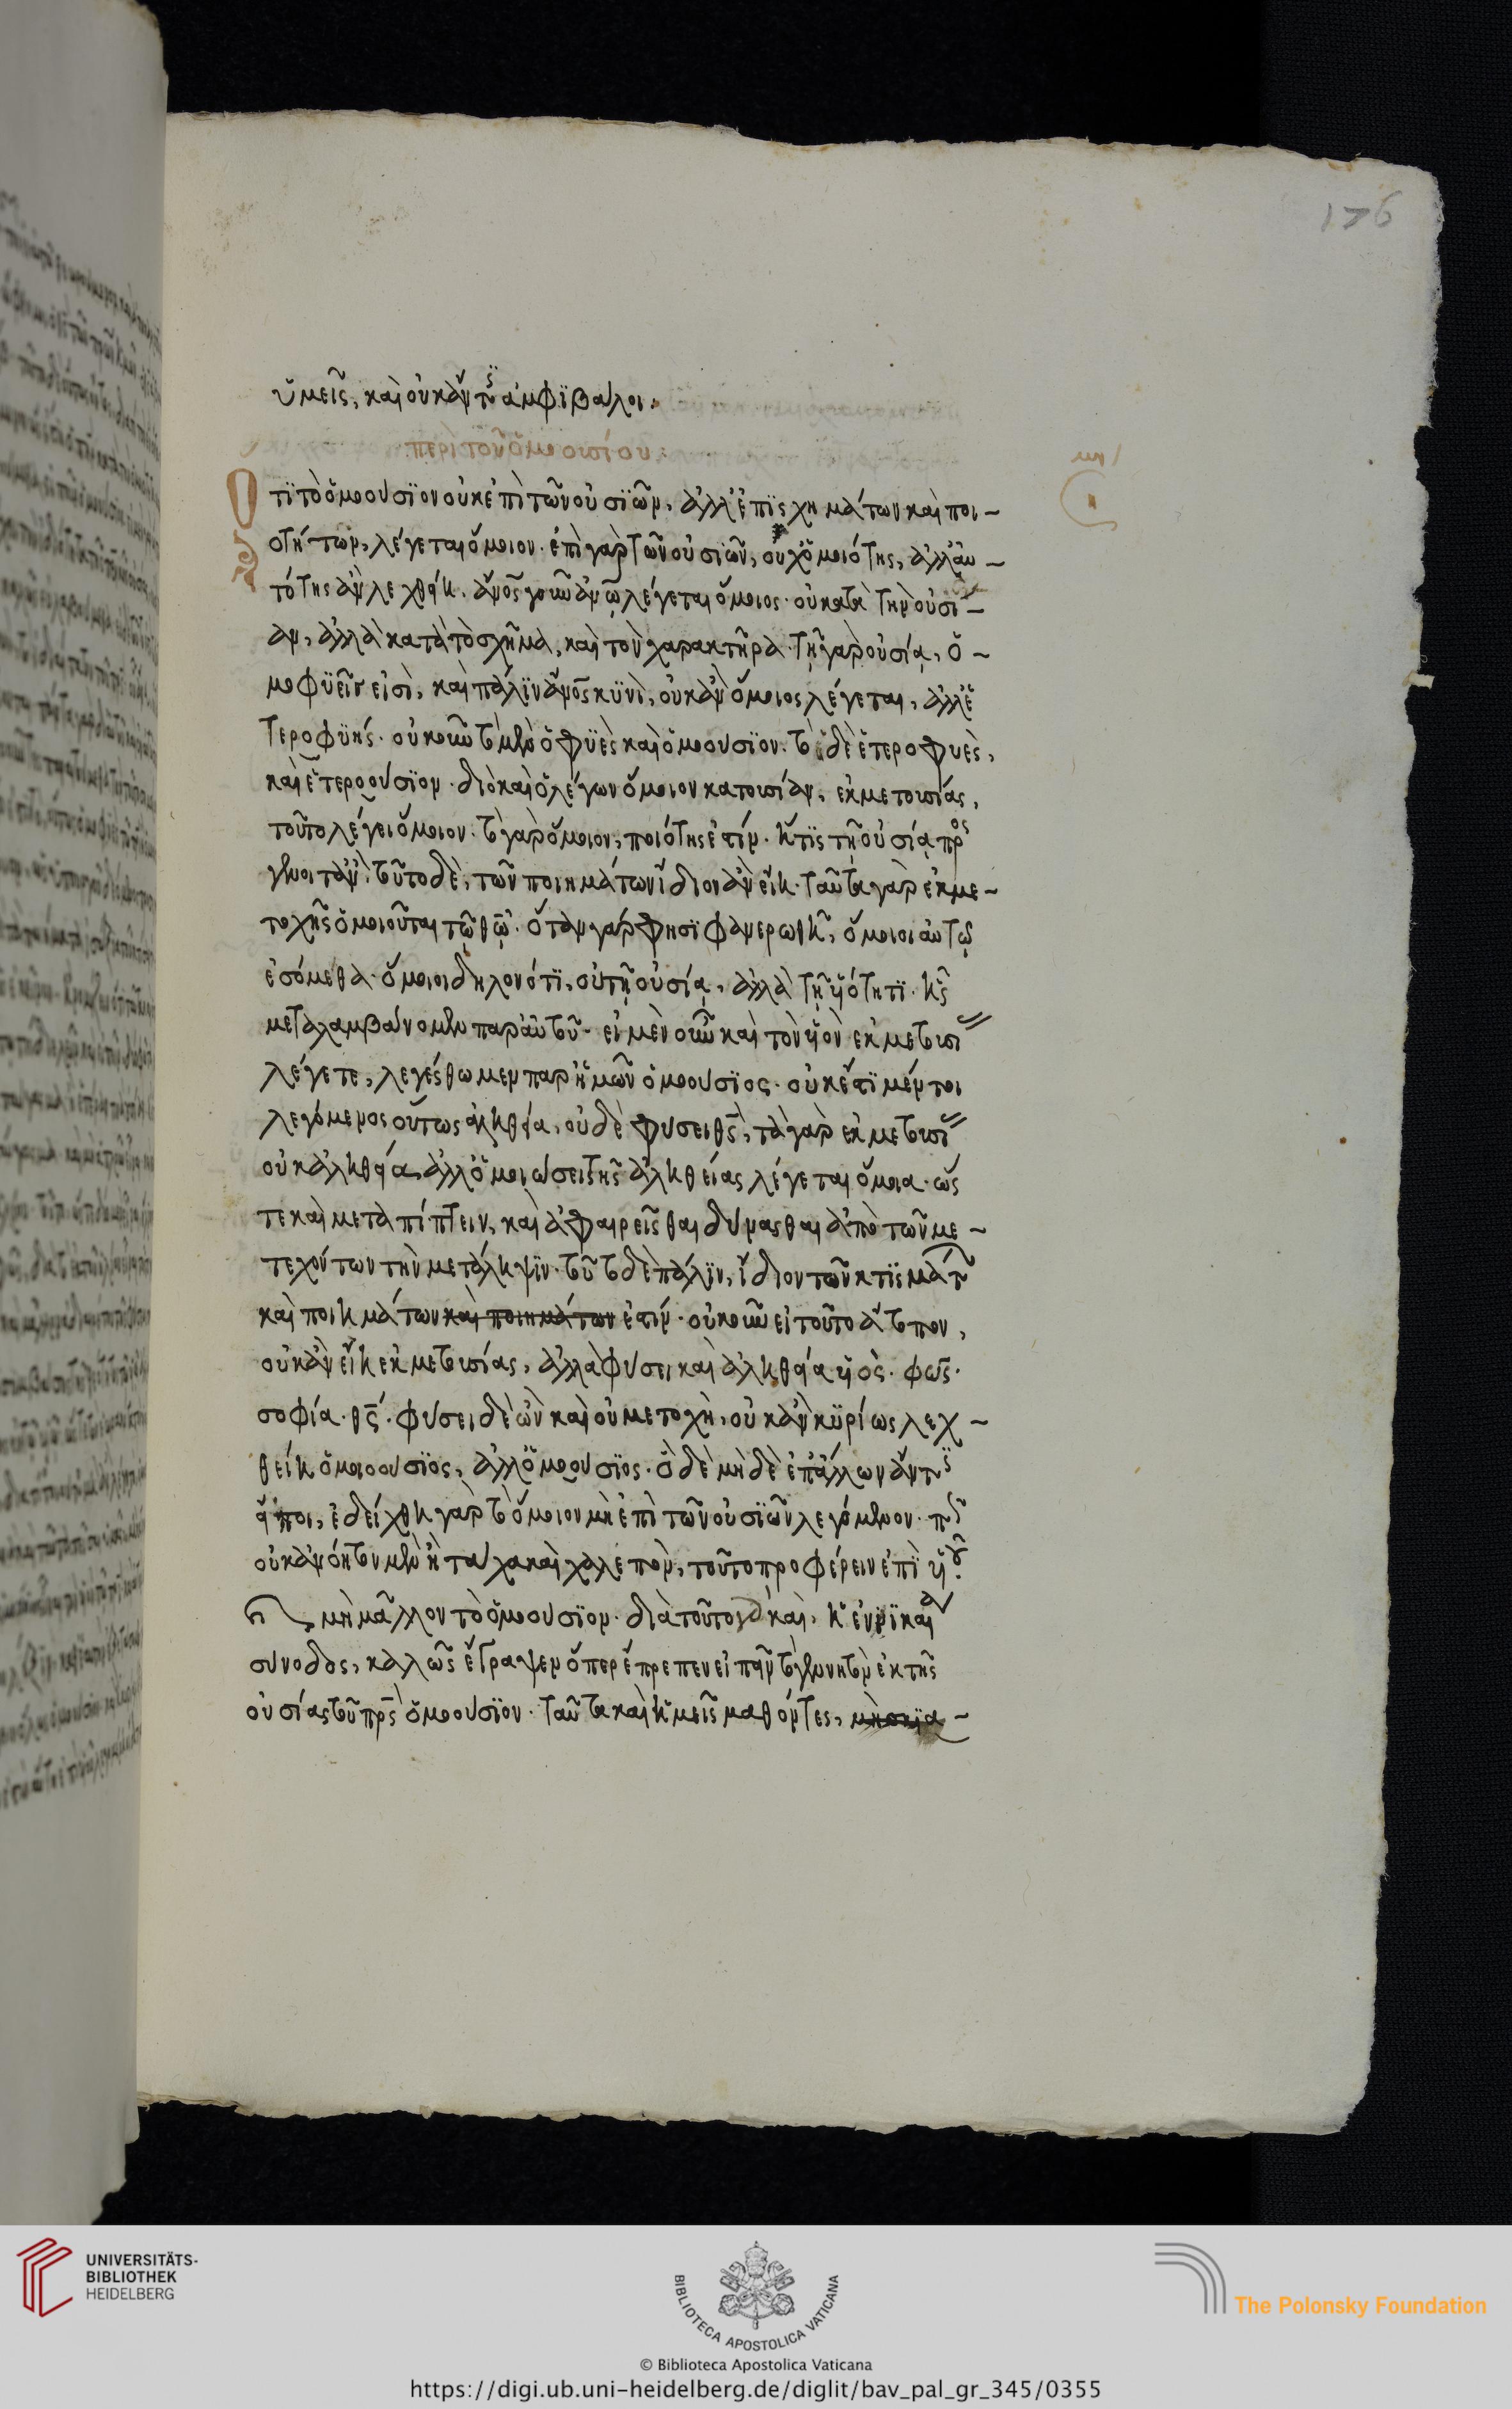 176
ὑμεῖς, καὶ οὐκ ἄν τις ἀμφιβάλοι.
περὶ τοῦ ὁμοουσίου:
Ὅτι τὸ ὁμοούσιον οὐκ ἐπὶ τῶν οὐσιῶν, ἀλλ' ἐπὶ σχημάτων καὶ ποι-
οτήτων, λέγεται ὅμοιον. ἐπὶ γὰρ τῶν οὐσιῶν, οὐχ ὁμοιότης, ἀλλὰ ταυ-
τότης ἂν λεχθείη. ἄνος γοῦν ἀνω λέγεται ὅμοιος. οὐ κατὰ τὴν οὐσί-
αν, ἀλλὰ κατὰ τὸ σχῆμα, καὶ τὸν χαρακτῆρα. τῇ γὰρ οὐσίᾳ, ὁ-
μοφυεῖς εἰσὶ, καὶ πάλιν ἄνος κυνὶ, οὐκ ἀνόμοιος λέγεται, ἀλλ' ἑ-
τεροφυής. οὐκοῦν τὸ μὲν ὁμοφυὲς καὶ ὁμοούσιον. τὸ δὲ ἑτεροφυὲς,
καὶ ἑτεροούσιον. διὸ καὶ ὁ λέγων ὅμοιον κατ' οὐσίαν, ἐκ μετουσίας,
τοῦτο λέγει ὅμοιον. τὸ γὰρ ὅμοιον, ποιότης ἐστίν. ἥτις τῇ οὐσίᾳ προσ
γένοιτ' ἄν. τοῦτο δὲ, τῶν ποιημάτων ἴδιον ἂν εἴη. ταῦτα γὰρ ἐκ με-
τοχῆς ὁμοιοῦται τῷ θῷ. ὅταν γάρ φησι φανερωθῇ, ὅμοιοι αὐτῷ
ἐσόμεθα. ὅμοιοι δηλονότι, οὐ τῇ οὐσίᾳ, ἀλλὰ τῇ υἱότητι. ἧς
μεταλαμβάνομεν παρ' αὐτοῦ. εἰ μὲν οὖν καὶ τὸν υἱὸν ἐκ μετουσίας
λέγετε, λεγέσθω μεν παρ' ἡμῶν ὁμοούσιος. οὐκ ἔστι μέντοι
λεγόμενος οὕτως ἀλήθεια, οὐδὲ φύσει θς, τὰ γὰρ ἐκ μετουσίας
οὐκ ἀλήθεια, ἀλλ' ὁμοιώσει τῆς ἀληθείας λέγεται ὅμοια. ὥς
τε καὶ μεταπίπτειν, καὶ ἀφαιρεῖσθαι δύνασθαι ἀπὸ τῶν με-
τεχόντων τὴν μετάληψιν. τοῦτο δὲ πάλιν, ἴδιον τῶν κτισμάτων
καὶ ποιημάτων καὶ ποιημάτων ἐστίν. οὐκοῦν εἰ τοῦτο ἄτοπον,
οὐκ ἂν εἴη ἐκ μετουσίας, ἀλλὰ φύσει καὶ ἀλήθεια υἱὸς. φῶς.
σοφία. θς. φύσει δὲ ὢν καὶ οὐ μετοχὴ, οὐκ ἂν κυρίως λεχ-
θείη ὁμοιοούσιος, ἀλλ' ὁμοούσιος. ὃ δὲ μὴ δὲ ἐπ' ἄλλων ἄν τις
εἴποι, ἐδείχθη γὰρ τὸ ὅμοιον μὴ ἐπὶ τῶν οὐσιῶν λεγόμενον. πῶς
οὐκ ἀνόητον μὲν ἢ τάχα καὶ χαλεπὸν, τοῦτο προφέρειν ἐπὶ υἱοῦ
μὴ μᾶλλον τὸ ὁμοούσιον. διὰ τοῦτο γὰρ καὶ, ἡ ἐν νικαίᾳ
σύνοδος, καλῶς ἔγραψεν ὅπερ ἔπρεπεν εἰπεῖν τὸ γεννητὸν ἐκ τῆς
οὐσίας τοῦ πρς ὁμοούσιον. ταῦτα καὶ ἡμεῖς μαθόντες, μὴ σκια-
UNIVERSITÄTS-
BIBLIOTHEK
HEIDELBERG
BIBLIOTECA APOSTOLICA VATICANA
The Polonsky Foundation
© Biblioteca Apostolica Vaticana
https://digi.ub.uni-heidelberg.de/diglit/bav_pal_gr_345/0355